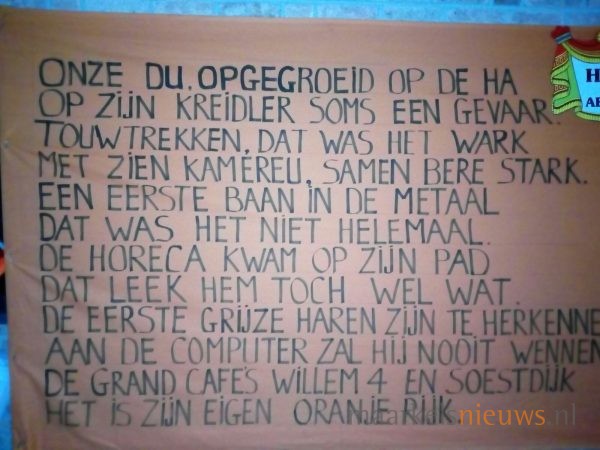 ONZE DU, OPGEGROEID OP DE HA
OP ZIJN KREIDLER SOMS EEN GEVAAR.
TOUWTREKKEN, DAT WAS HET WARK
MET ZIEN KAMEREU, SAMEN BERE STARK.
EEN EERSTE BAAN IN DE METAAL
DAT WAS HET NIET HELEMAAL.
DE HORECA KWAM OP ZIJN PAD
DAT LEEK HEM TOCH WEL WAT.
DE EERSTE GRIJZE HAREN ZIJN TE HERKENNE
AAN DE COMPUTER ZAL HIJ NOOIT WENNEN
DE GRAND CAFE'S WILLEM 4 EN SOESTDIJK
HET IS ZIJN EIGEN ORANJE RIJK.
nieuws.nl